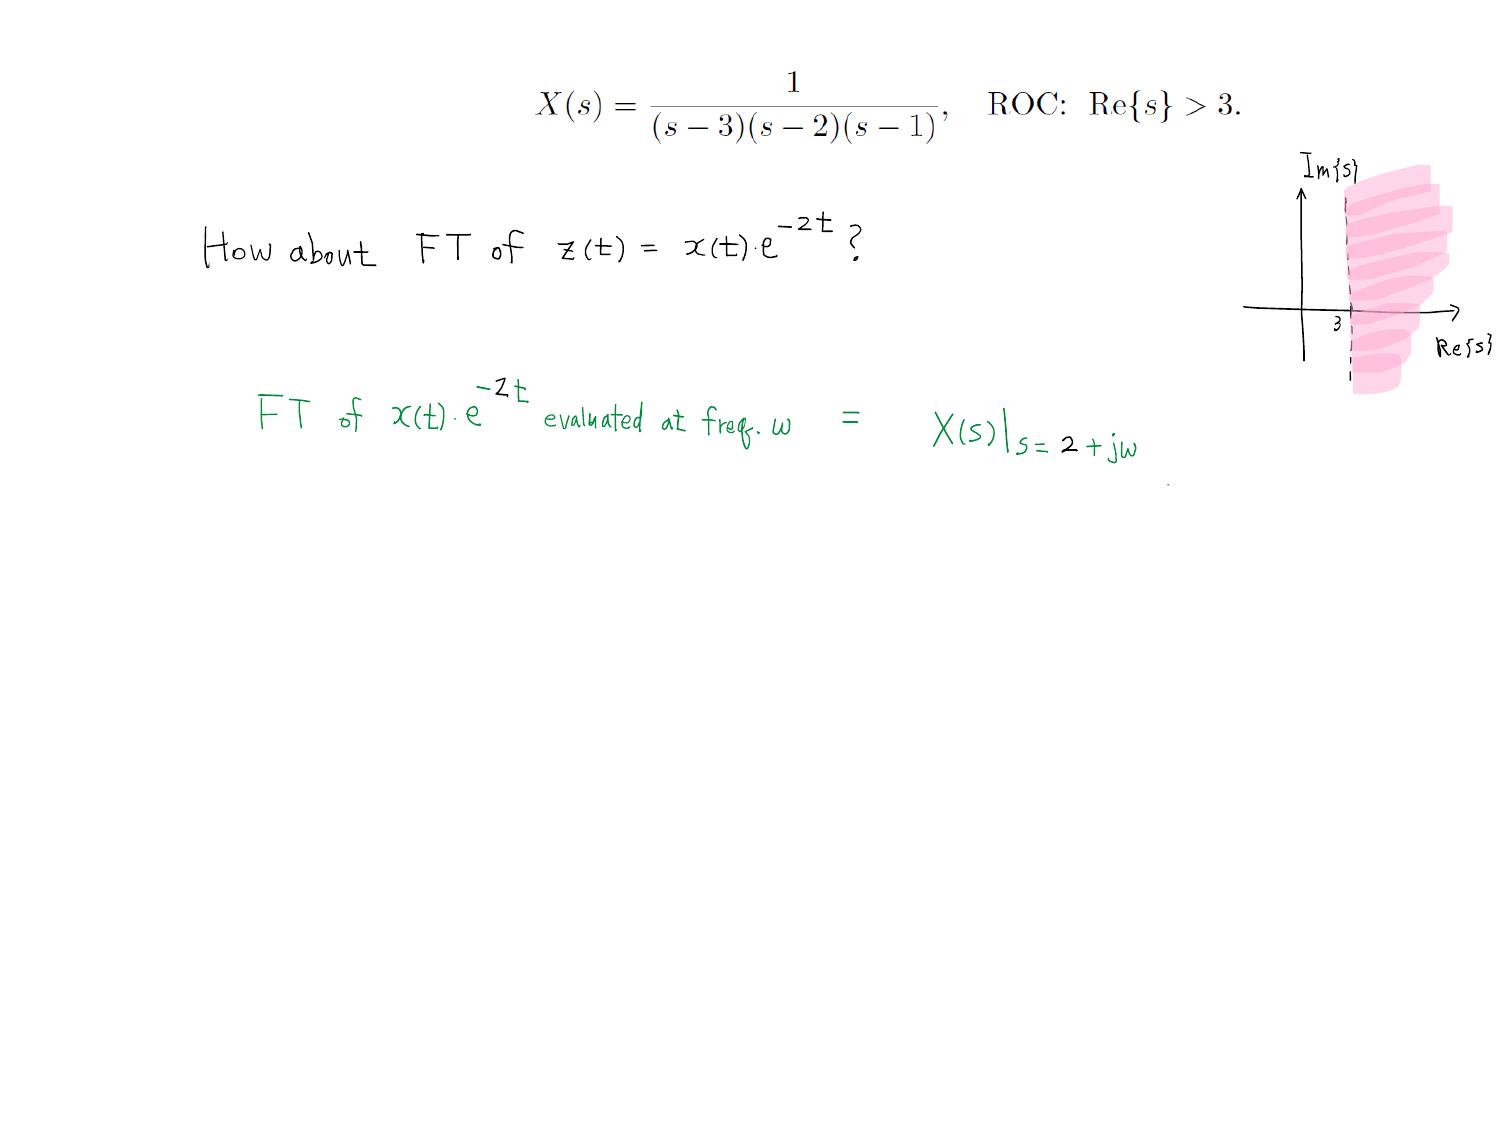 X(s) = 1 / ((s − 3)(s − 2)(s − 1)), ROC: Re{s} > 3.
Im{s}
How about FT of z(t) = x(t)·e^{-2t} ?
3
Re{s}
FT of x(t)·e^{-2t} evaluated at freq. ω = X(s)|_{s=2+jω}